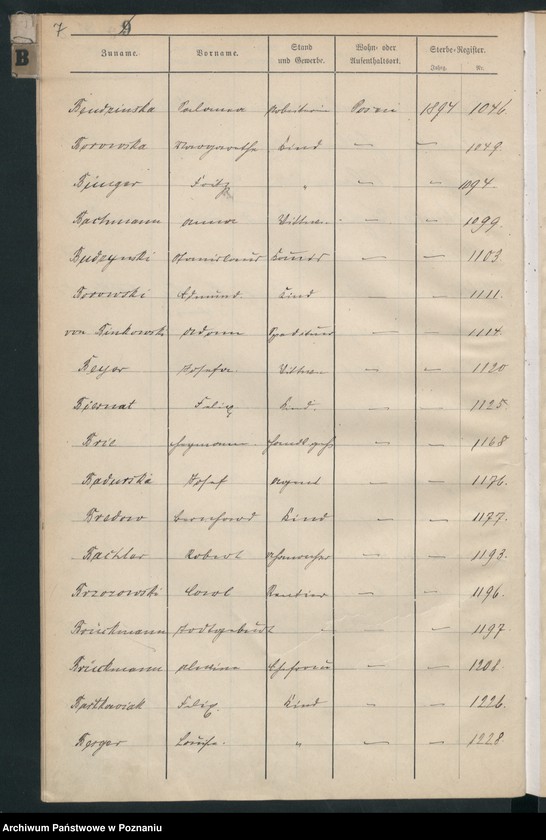 7 9
B
Zuname. Vorname. Stand und Gewerbe. Wohn- oder Aufenthaltsort. Sterbe-Register.
Jahrg. Nr.
Bendzinska Arbeiterin Posen 1894 1046.
Borowska Margarethe Kind — — 1049.
Bünger Fritz " — — 1094.
Bachmann Anna Wittwe — — 1099.
Budzynski Stanislaus — — 1103
Borowski Edmund. Kind — — 1111.
von Binkowski Spediteur — — 1114.
Beyer Josefa. Wittwe — — 1120
Biernat Felix Kind. — — 1125.
Brie Hermann. — — 1168
Badurski Josef Agent — — 1176.
Bredow Bernhard Kind — — 1177.
Bachler Robert — — 1193.
Brzozowski Carl Rentier — — 1196.
Brückmann Todtgeburt — — — 1197
Brückmann Alwine Ehefrau — — 1208.
Bartkowiak Felix. Kind — — 1226.
Berger Louise. " — — 1228
Archiwum Państwowe w Poznaniu